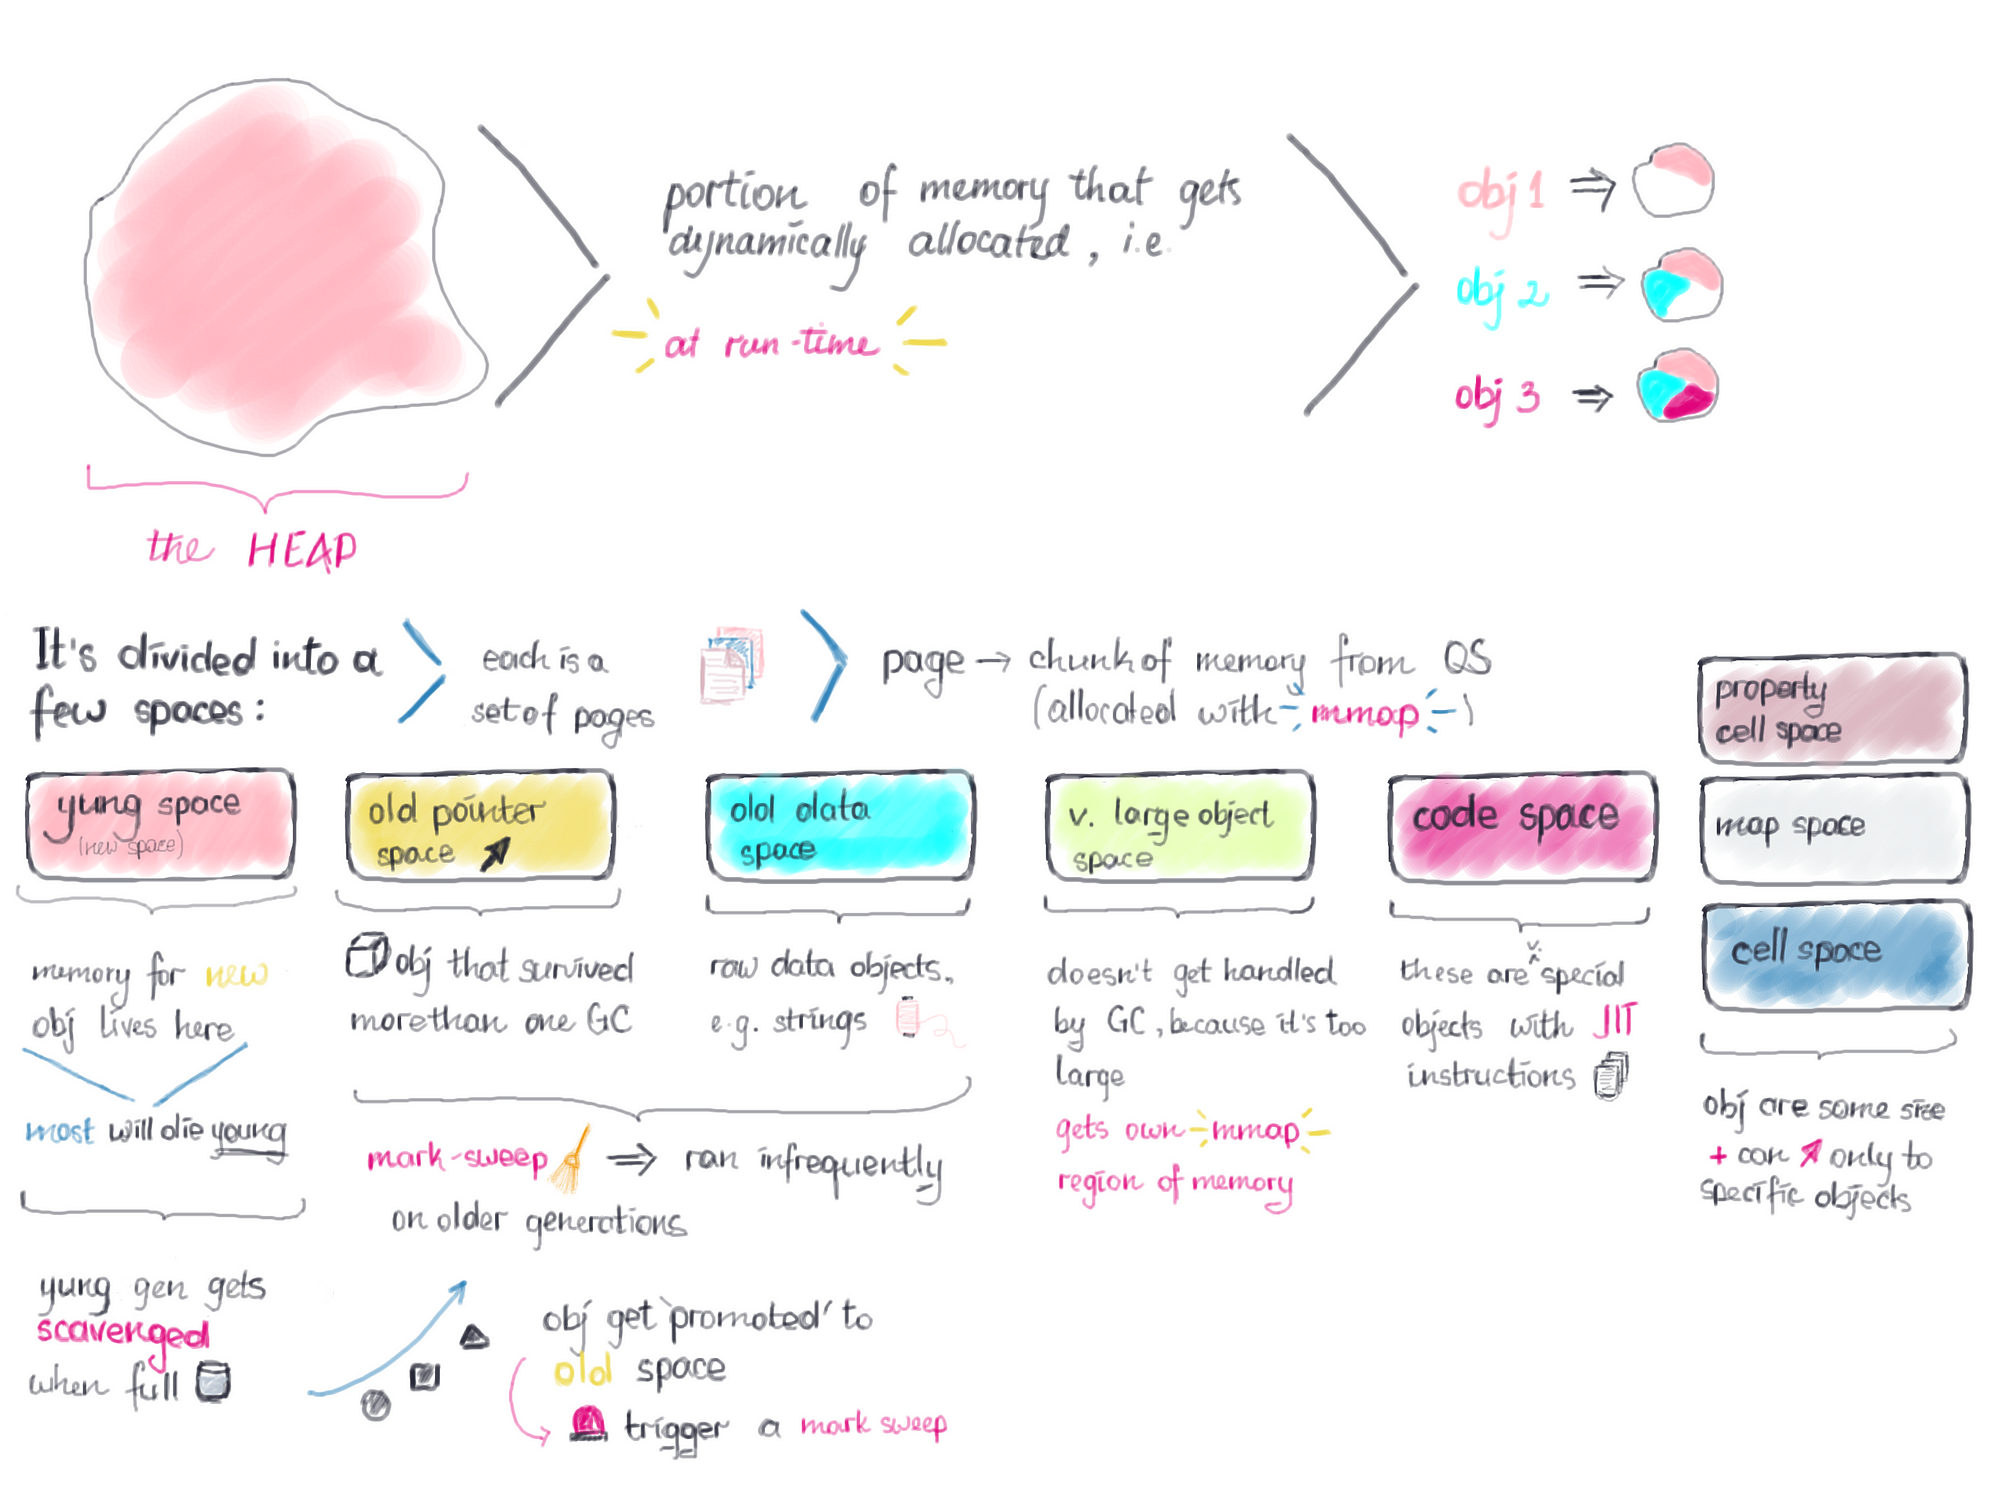 portion of memory that gets
dynamically allocated, i.e.
at run-time
obj 1 ⇒
obj 2 ⇒
obj 3 ⇒
the HEAP
It's divided into a
few spaces:
each is a
set of pages
page → chunk of memory from OS
(allocated with mmap)
yung space
(new space)
old pointer
space
old data
space
v. large object
space
code space
property
cell space
map space
cell space
memory for new
obj lives here
most will die young
yung gen gets
scavenged
when full
obj that survived
more than one GC
raw data objects,
e.g. strings
mark-sweep ⇒ ran infrequently
on older generations
obj get 'promoted' to
old space
trigger a mark sweep
doesn't get handled
by GC, because it's too
large
gets own mmap
region of memory
these are v. special
objects with JIT
instructions
obj are same size
+ can only to
specific objects